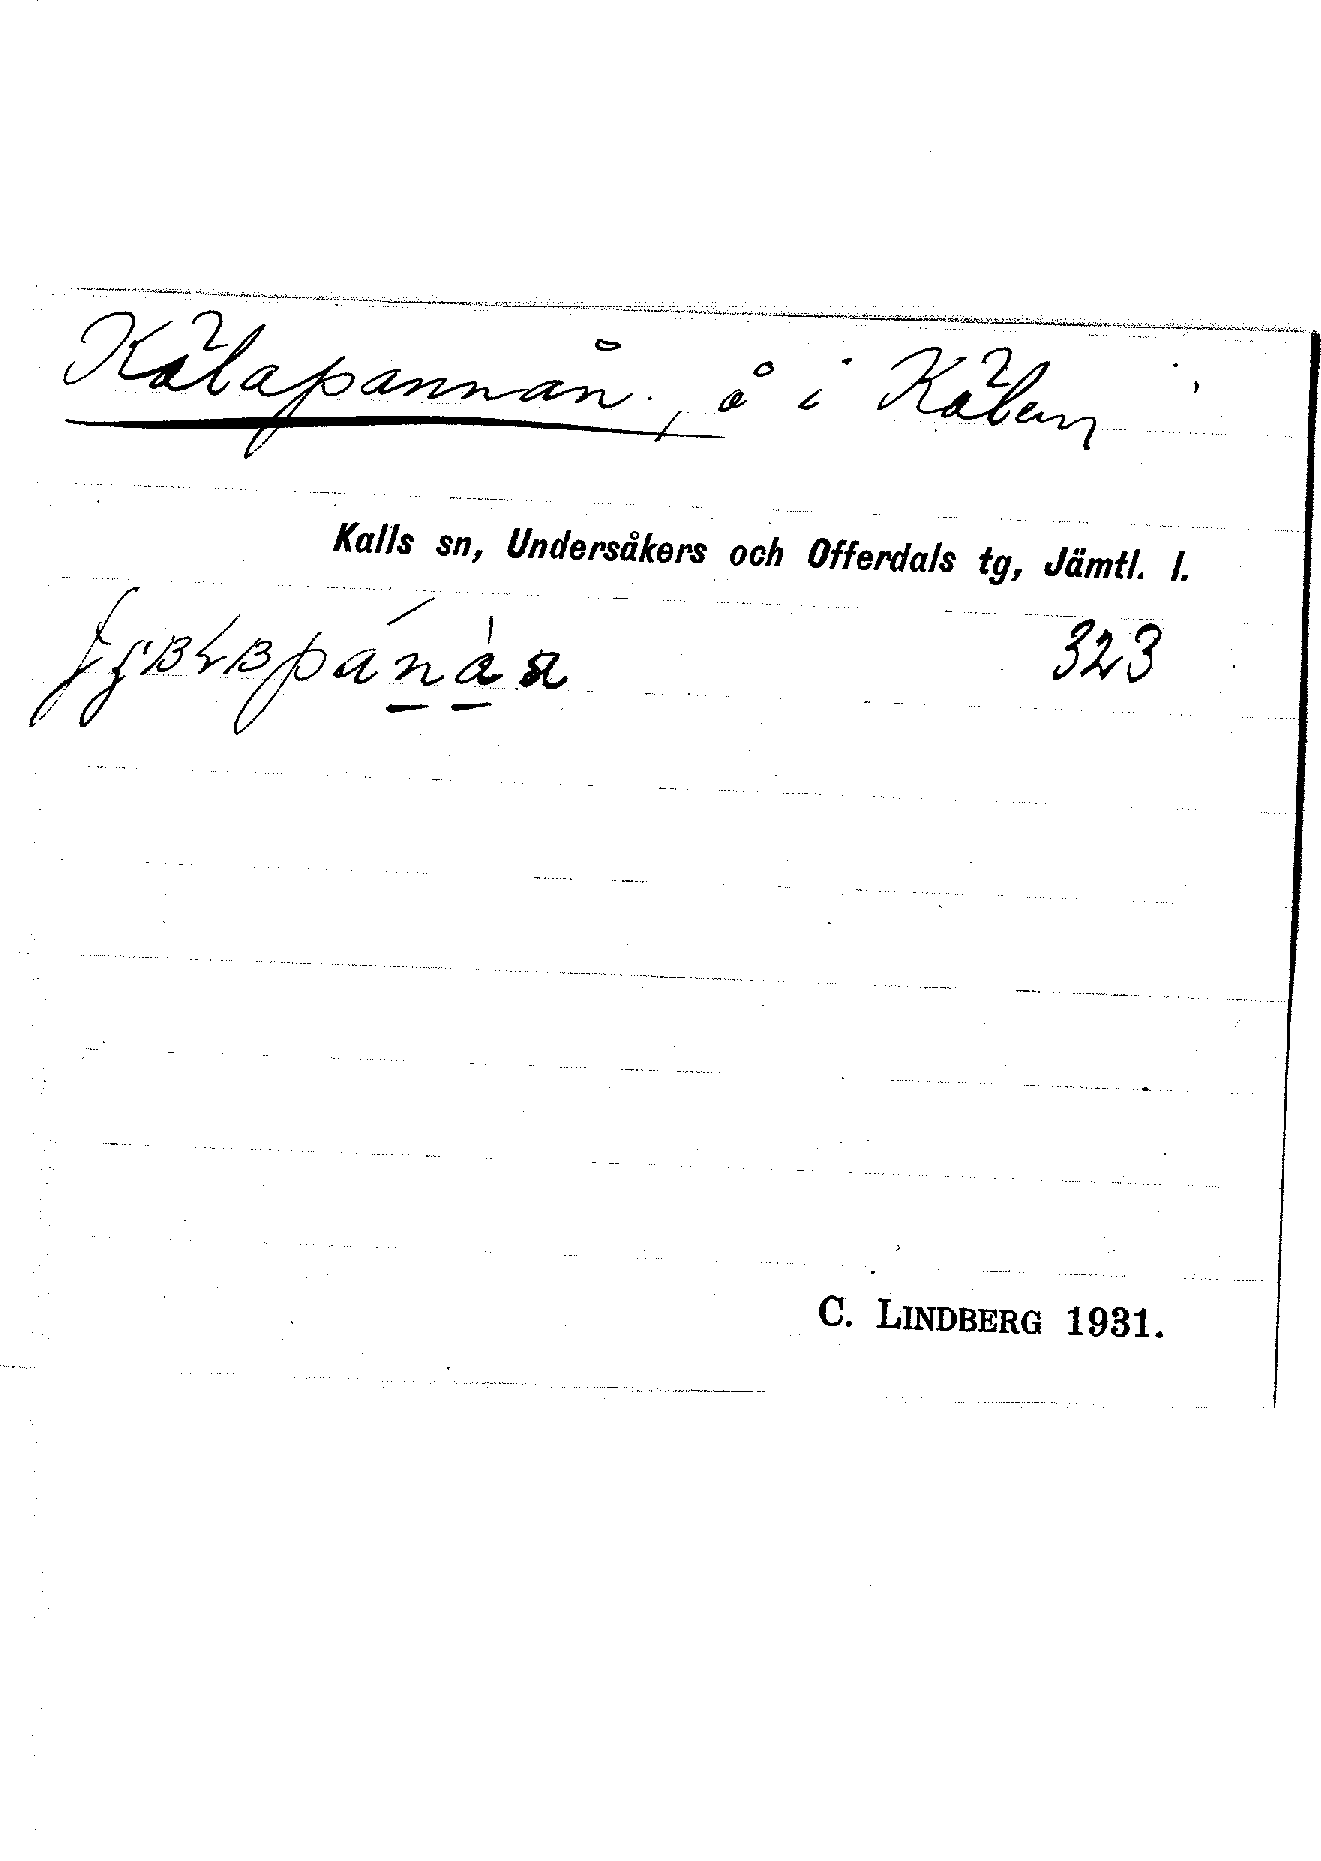 Kölapannån., å i Kölen
Kalls sn, Undersåkers och Offerdals tg, Jämtl. l.
323
C. LINDBERG 1931.